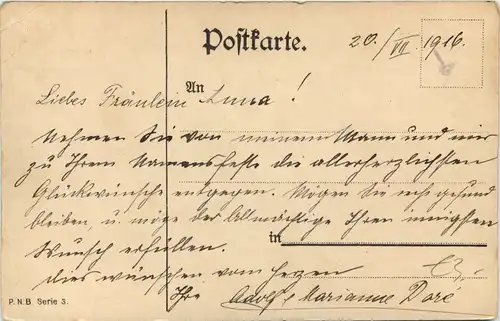 Postkarte.
20./VII. 1916.
An
Liebes Fräulein Anna!
Nehmen Sie von meinem Mann und mir
zu Ihrem Namensfeste die allerherzlichsten
Glückwünsche entgegen. Mögen Sie recht gesund
bleiben, u. möge der Allmächtige Ihren innigsten
Wunsch erfüllen.
in
Dies wünschen vom Herzen
Ihre Adolf & Marianne Doré
P.N.B Serie 3.